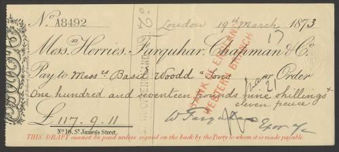 No. A8492 London 19th March 1873
Messrs. Herries, Farquhar, Chapman & Co.
Pay to Messrs Basil Woodd & Sons or Order
One hundred and seventeen pounds nine shillings &
eleven pence
£117.9.11
No. 16, St. James's Street.
BANK OF ENGLAND
WESTERN BRANCH
THIS DRAFT cannot be paid unless signed on the back by the Party to whom it is made payable.